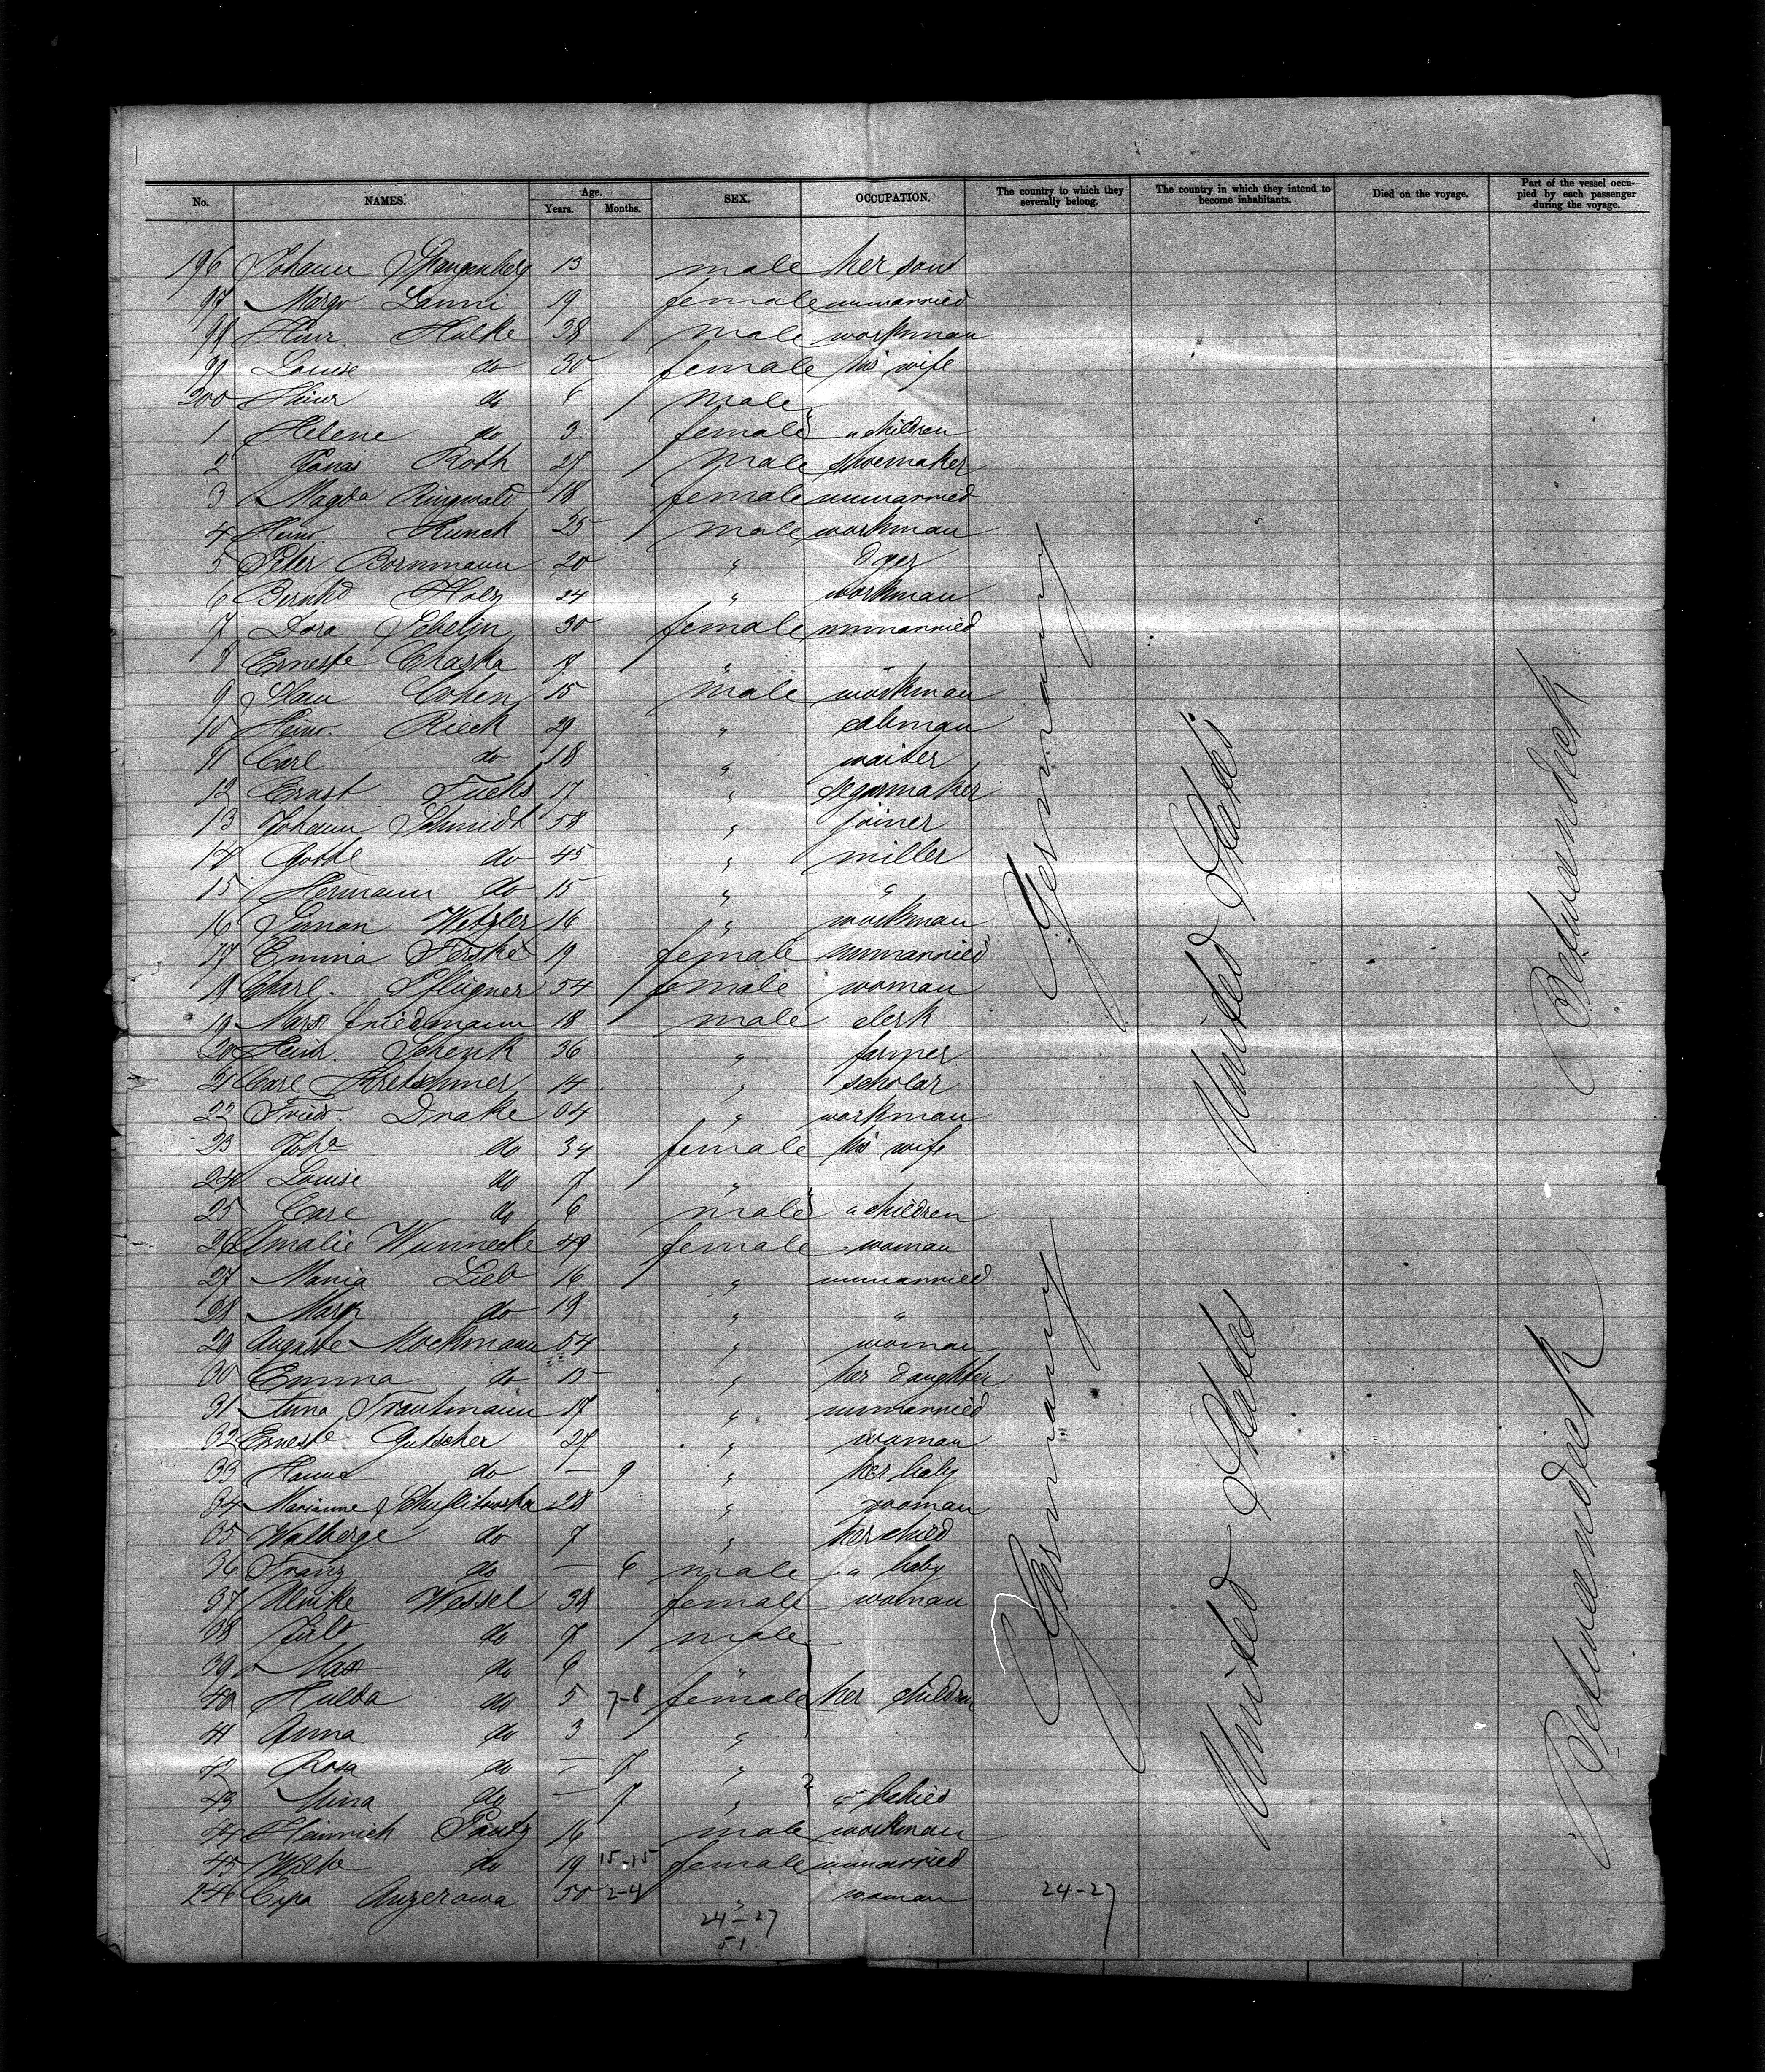 No. NAMES. Age. Years. Months. SEX. OCCUPATION. The country to which they severally belong. The country in which they intend to become inhabitants. Died on the voyage. Part of the vessel occupied by each passenger during the voyage.
196 Johann Spangenberg 13 male her son
97 Margr Lanni 19 female unmarried
98 Heinr. Halke 38 male workman
99 Louise do 30 female his wife
200 Heinr do 6 male
1 Helene do 3 female " children
2 Roth 27 male shoemaker
3 Magda Ringwald 18 female unmarried
4 Heinr. Hunck 25 male workman
5 Peter Bornmann 20 " dyer
6 Bernhd Holz 24 " workman
7 Dora Sebelin 30 female unmarried
8 Erneste Chaska 17 " "
9 Sam Cohen 15 male workman
10 Heinr. Rieck 29 "
11 Carl do 18 " waiter
12 Ernst Fuchs 17 " segarmaker
13 Johann Schmidt 58 " joiner
14 Gotte do 45 " miller
15 Hermann do 15 " "
16 Siman Wetzler 16 " workman
17 Emma Ferske 19 female unmarried
18 Charl. Pfligner 54 female woman
19 Max Friedmann 18 male clerk
20 Heinr. Schenk 36 " farmer
21 Carl Kretschmer 14 " scholar
22 Friedr. Drake 34 " workman
23 Joha do 34 female his wife
24 Louise do 7 "
25 Carl do 6 male " children
26 Amalie Wunnecke 49 female woman
27 Maria Lieb 16 " unmarried
28 Margr do 18 " "
29 Auguste Mockmann 54 " woman
30 Emma do 15 " her daughter
31 Anna Trautmann 17 " unmarried
32 Erneste Gutscher 27 " woman
33 Hanna do — 9 " her baby
34 Marianne 28 " woman
35 Walberge do 7 " her child
36 Franz do — 6 male " baby
37 Ulrike Wessel 38 female woman
38 do 7 male
39 Max do 6 "
40 Hulda do 5 7-8 female her children
41 Anna do 3 "
42 Rosa do — 7 "
43 Mina do — 7 " " babies
44 Heinrich Pautz 16 male workman
45 Wilhe do 19 15-15 female unmarried
246 Cipa Anzerowa 50 2-4 " woman 24-27
24-27
51
Germany
Germany
United States
United States
Betweendeck
Betweendeck